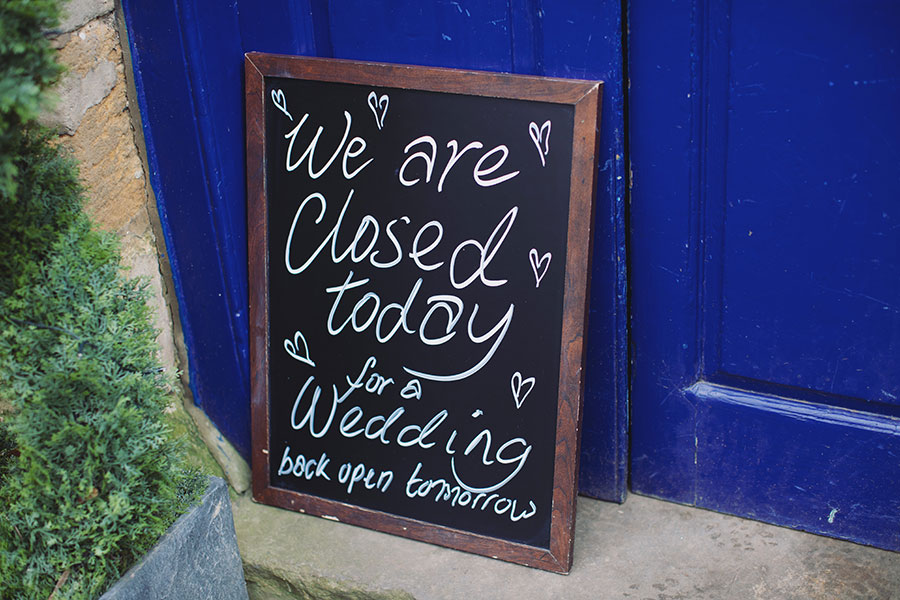 We are
Closed
today
for a
Wedding
back open tomorrow